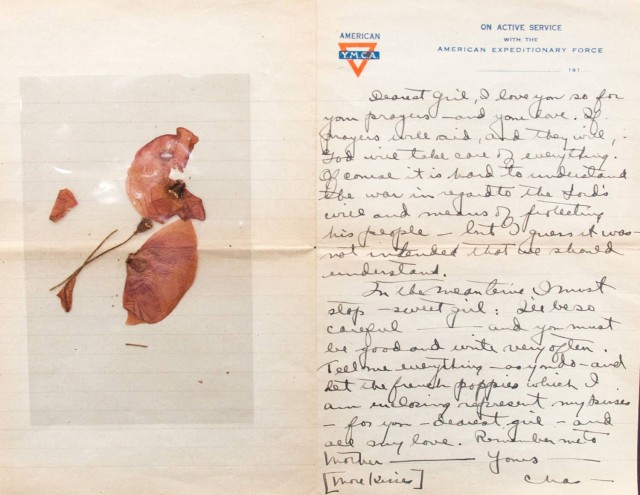 AMERICAN
Y.M.C.A.
ON ACTIVE SERVICE
WITH THE
AMERICAN EXPEDITIONARY FORCE
191
Dearest girl, I love you so for
your prayers – and your love. If
prayers will aid, and they will,
God will take care of everything.
Of course it is hard to understand
the war in regard to the Lord's
will and means of protecting
his people – but I guess it was
not intended that we should
understand.
In the meantime I must
stop – sweet girl: I'll be so
careful — and you must
be good and write very often.
Tell me everything – as you do – and
let the french poppies which I
am enclosing represent my kisses
– for you – dearest girl – and
all my love. Remember me to
Mother — Yours —
[More Kisses] Chas –